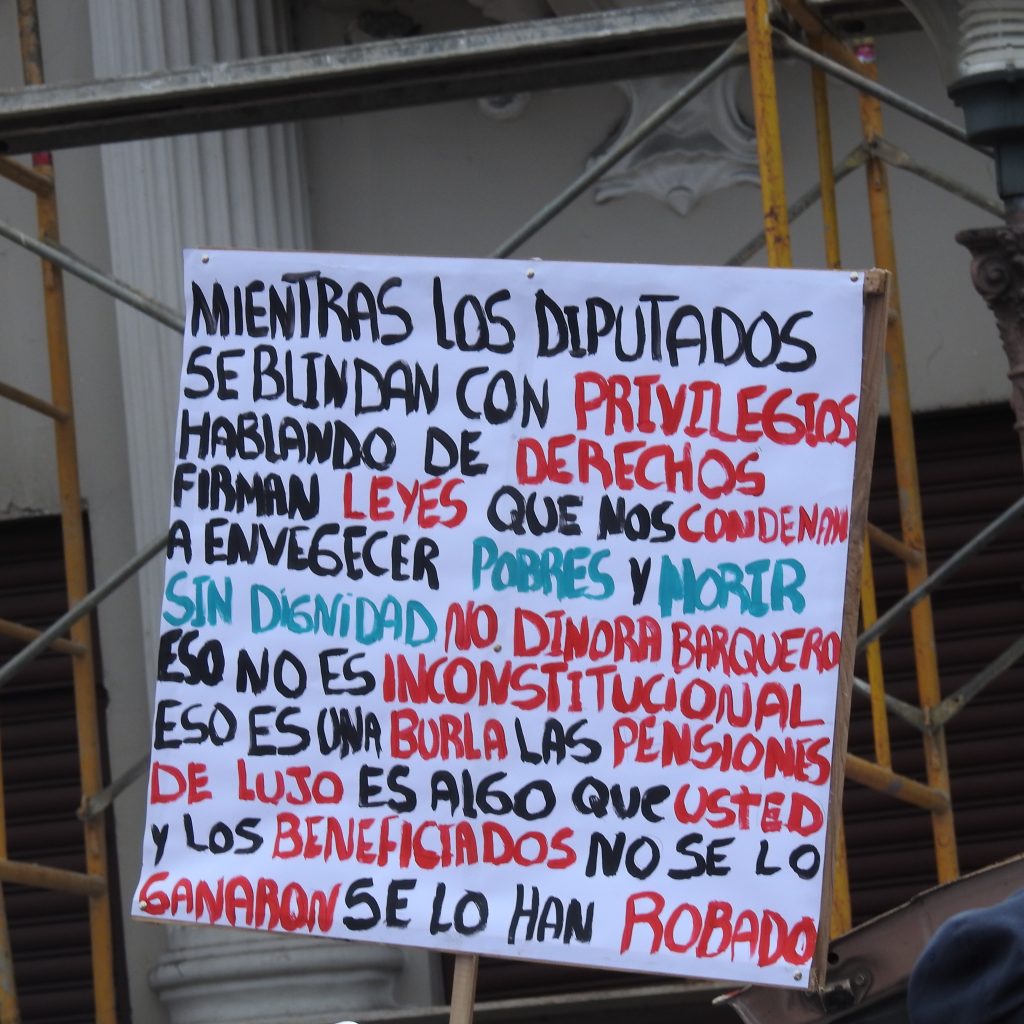 MIENTRAS LOS DIPUTADOS
SE BLINDAN CON PRIVILEGIOS
HABLANDO DE DERECHOS
FIRMAN LEYES QUE NOS CONDENAN
A ENVEGECER POBRES Y MORIR
SIN DIGNIDAD NO DINORA BARQUERO
ESO NO ES INCONSTITUCIONAL
ESO ES UNA BURLA LAS PENSIONES
DE LUJO ES ALGO QUE USTED
Y LOS BENEFICIADOS NO SE LO
GANARON SE LO HAN ROBADO